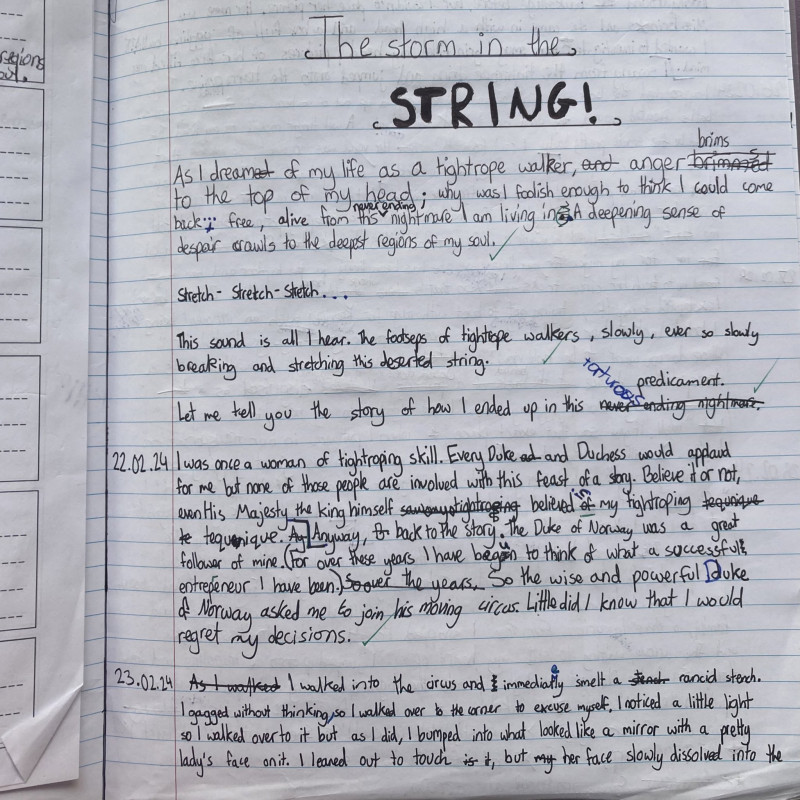 regions
The storm in the
STRING!
brims
As I dreamed of my life as a tightrope walker, and anger brimmed
to the top of my head; why was I foolish enough to think I could come
never ending
back; free, alive from this nightmare I am living in. A deepening sense of
despair crawls to the deepest regions of my soul.
Stretch - Stretch - Stretch...
This sound is all I hear. The footseps of tightrope walkers, slowly, ever so slowly
breaking and stretching this deserted string.
predicament.
Let me tell you the story of how I ended up in this never ending nightmare.
22.02.24 I was once a woman of tightroping skill. Every Duke ad and Duchess would applaud
for me but none of those people are involved with this feast of a story. Believe it or not,
even His Majesty the king himself believed in my tightroping tequnique
te tequnique. Ay Anyway, back to the story. The Duke of Norway was a great
follower of mine. (For over these years I have begun to think of what a successful
entrepeneur I have been.) So over the years. So the wise and powerful Duke
of Norway asked me to join his moving circus. Little did I know that I would
regret my decisions.
23.02.24 As I walked I walked into the circus and I immediately smelt a stench rancid stench.
I gagged without thinking, so I walked over to the corner to excuse myself, I noticed a little light
so I walked over to it but as I did, I bumped into what looked like a mirror with a pretty
lady's face on it. I leaned out to touch is it, but my her face slowly dissolved into the